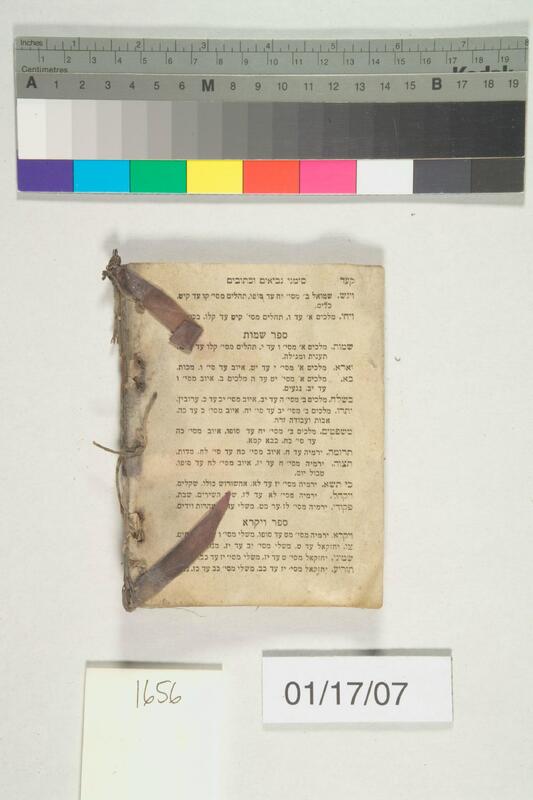 Inches 1 2 3 4 5 6 7 8
Centimetres 1 2 3 4 5 6 7 8 9 10 11 12 13 14 15 16 17 18 19
Kodak
A 1 2 3 4 5 6 M 8 9 10 11 12 13 14 15 B 17 18 19
קעד סימני נביאים וכתובים
ויגש. שמואל ב׳ מסי׳ יח עד סופו, תהלים מסי׳ קו עד קיט.
כלים.
ויחי. מלכים א׳ עד ו. תהלים מסי׳ קיט עד קלו.
ספר שמות
שמות. מלכים א׳ מסי׳ ו עד י. תהלים מסי׳ קלו עד
תענית ומגילה.
וארא. מלכים א׳ מסי׳ י עד יט. איוב עד סי׳ ו. מכות.
בא. מלכים א׳ מסי׳ יט עד ה מלכים ב. איוב מסי׳ ו
עד יב. נגעים.
בשלח. מלכים ב׳ מסי׳ ה עד יב. איוב מסי׳ יב עד כ. ערובין.
יתרו. מלכים ב׳ מסי׳ יב עד סי׳ יח. איוב מסי׳ כ עד כה.
אבות ועבודה זרה.
משפטים. מלכים ב׳ מסי׳ יח עד סופו. איוב מסי׳ כה
עד סי׳ כח. בבא קמא.
תרומה. ירמיה עד ח. איוב מסי׳ כח עד סי׳ לח. מדות.
תצוה. ירמיה מסי׳ ח עד יז. איוב מסי׳ לח עד סופו.
טבול יום.
כי תשא. ירמיה מסי׳ יז עד לא. אחשורוש כולו. שקלים.
ויקהל. ירמיה מסי׳ לא עד לז. השירים. שבת.
פקודי. ירמיה מסי׳ לז עד מט. משלי עד וידים.
ספר ויקרא
ויקרא. ירמיה מסי׳ מט עד סופו. משלי מסי׳ ו
צו. יחזקאל עד ט. משלי מסי׳ יב עד יז.
שמיני. יחזקאל מסי׳ ט עד יז. משלי מסי׳ יז עד כב.
תזריע. יחזקאל מסי׳ יז עד כב. משלי מסי׳ כב עד כז.
1656
01/17/07